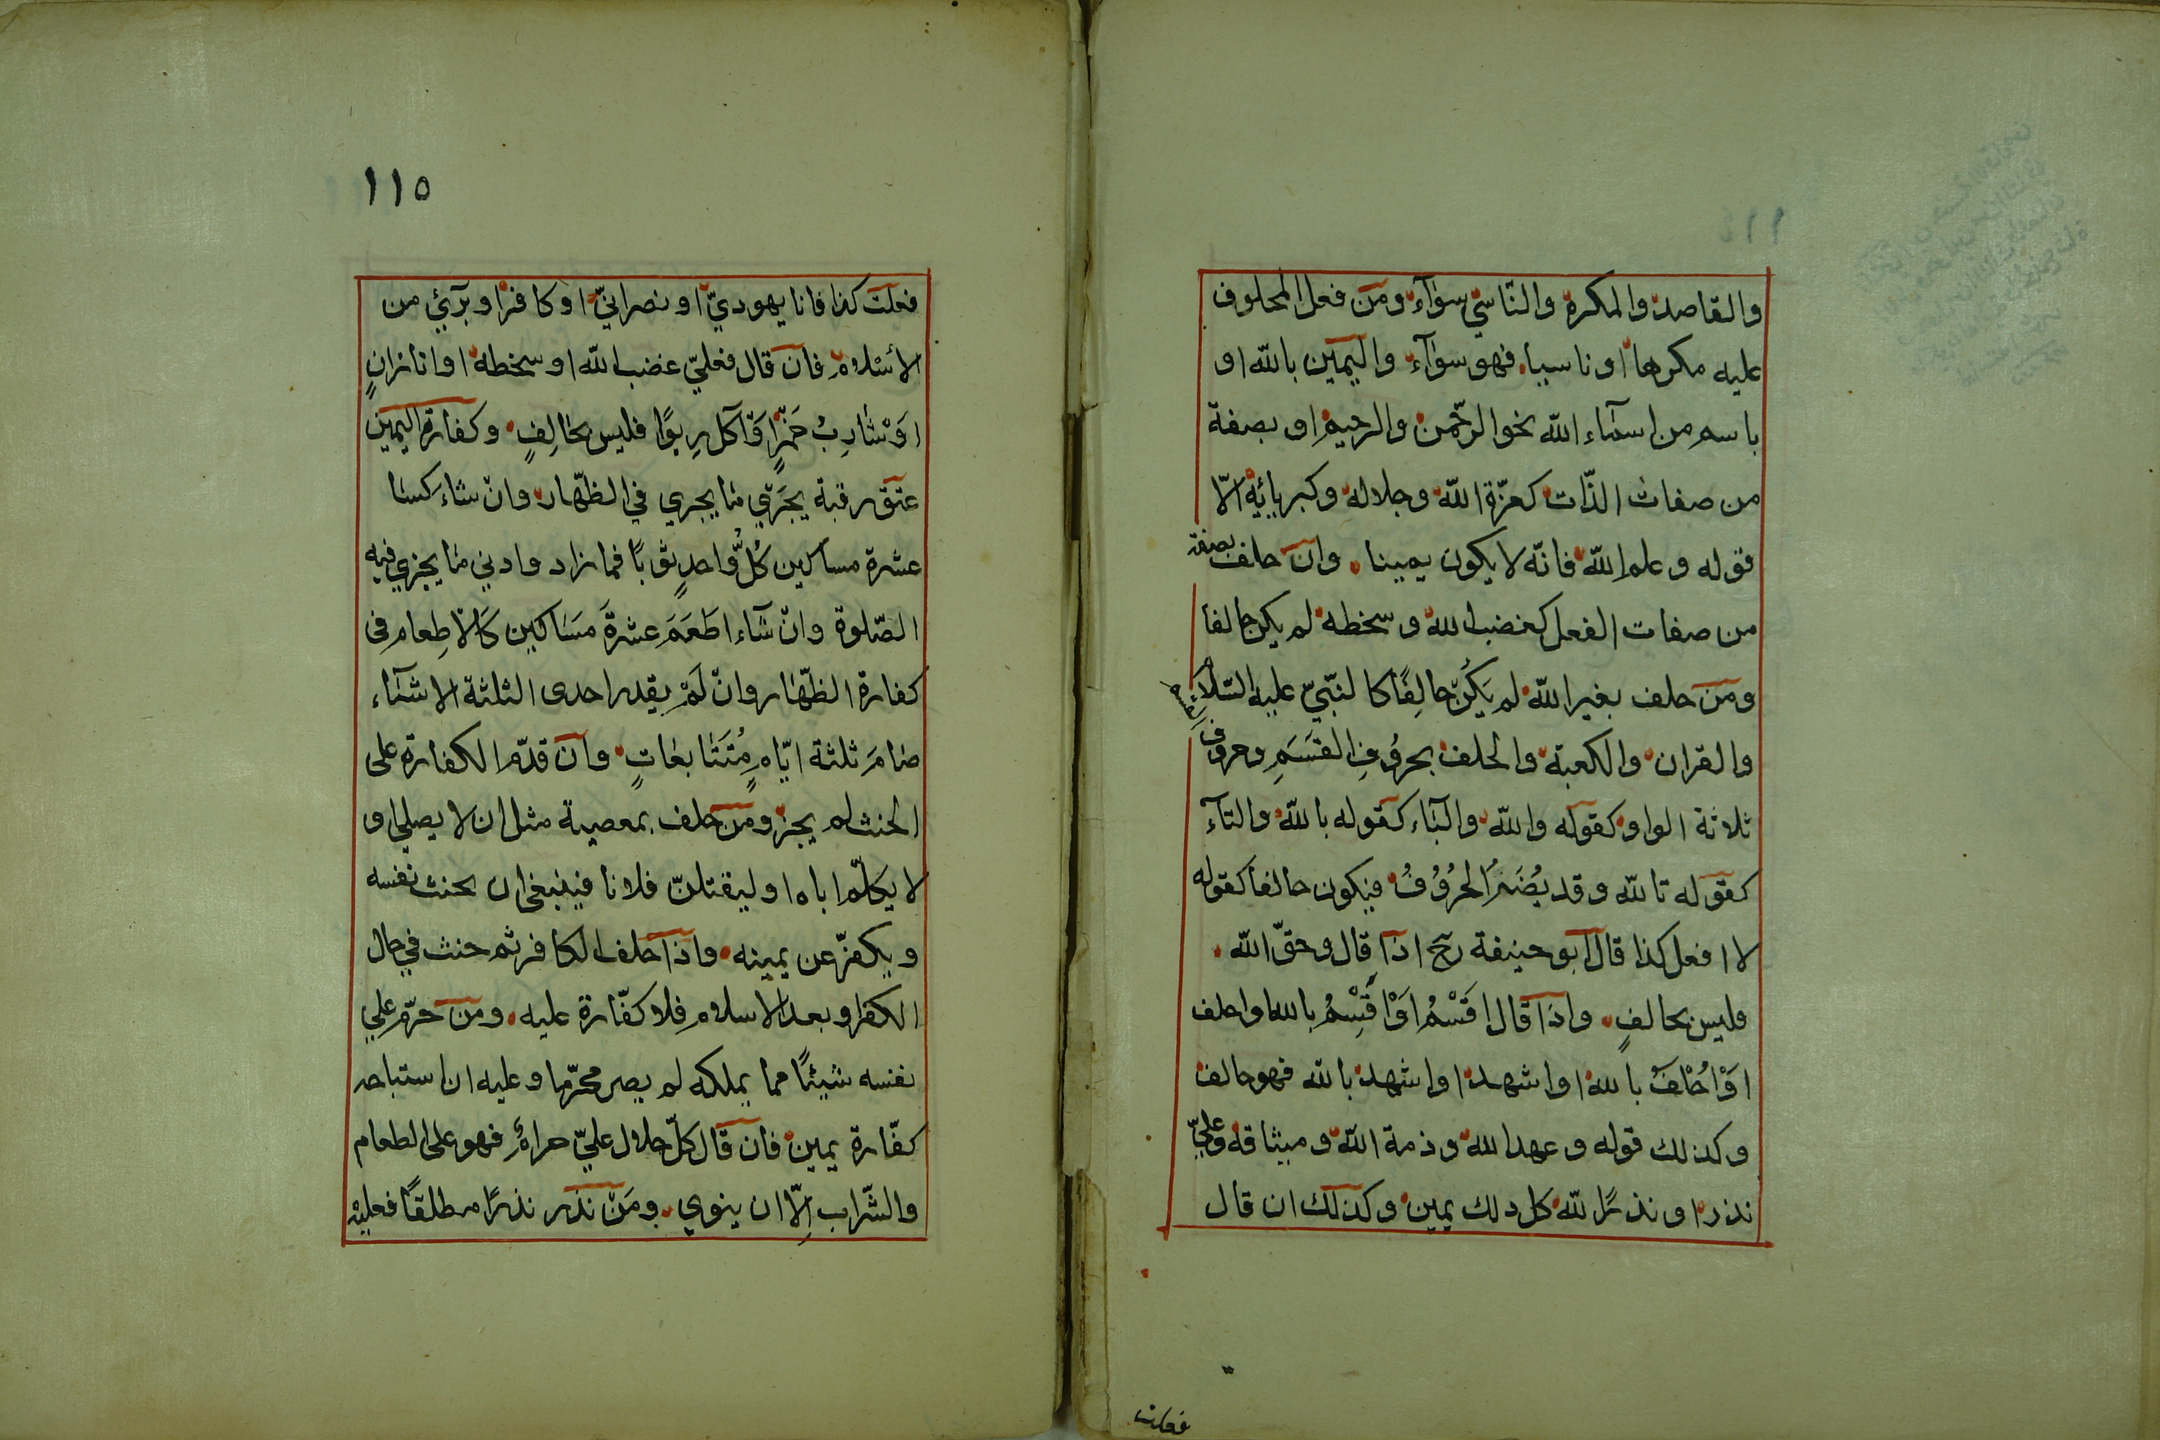 والقاصد والمكره والنّاسي سوآء ومن فعل المحلوف
عليه مكرها او ناسيا فهو سوآء واليمين بالله او
باسم من اسمآء الله نحو الرحمن والرحيم او بصفة
من صفات الذّات كعزّة الله وجلاله وكبريائه الّا
قوله وعلم الله فانّه لا يكون يمينا وان حلف بصفة
من صفات الفعل كغضب الله وسخطه لم يكن حالفا
ومن حلف بغير الله لم يَكُنْ حالِفًا كالنّبيّ عليه السّلام
والقران والكعبة والحلف بحرُوفِ القسَمِ وحروف القسم
ثلاثة الواو كقوله والله والبآء كقوله بالله والتآء
كقوله تالله وقد يُضْمَرُ الحرُوُفُ فيكون حالفا كقوله
لا افعل كذا قال ابو حنيفة رح اذا قال وحقّ الله
فليس بحالفٍ واذا قال اقسْمُ اوْ اُقْسِمُ بالله او احلف
اوْ اَحْلفُ بالله او اشهد او اشهد بالله فهو حالف
وكذلك قوله وعهد الله وذمة الله وميثاقه وعليّ
نذر او نذرًا لله كل ذلك يمين وكذلك ان قال
فعلت
١١٥
فعلت كذا فانا يهوديّ او نصرانيّ او كافرا وبرّيئ من
الاسْلام فان قال فعليّ غضب الله او سخطه او انا زانٍ
اوْ شاربُ خمْرٍ اوْ آكل ربوًا فليس بحالِفٍ وكفارة اليمين
عتق رقبة يجزي ما يجزي في الظّهار وان شاء كسا
عشرة مساكين كُلَّ واحدٍ ثوبًا فما زاد وادني ما يجزي فيه
الصّلوة وانْ شآء اطْعَمَ عشرةَ مَساكين كالاطِعام في
كفارة الظّهار وانْ لَمْ يقدر احدى الثلثة الاشيآء
صامَ ثلثة ايّامٍ مُتَتَابعاتٍ وان قدّم الكفارة على
الحنث لم يجز ومن حلف بمعصية مثل ان لا يصلي او
لا يكلّم اباه او ليقتلنّ فلانا فينبغي ان يحنث نفسه
ويكفّر عن يمينه واذا حلف الكافر ثم حنث في حال
الكفر او بعد الاسلام فلا كفّارة عليه ومن حرّم علي
نفسه شيئًا مما يملكه لم يصر محرّما وعليه ان استباحه
كفّارة يمين فان قال كلّ حلال عليّ حرام فهو على الطعام
والشّراب الّا ان ينوي ومَنْ نذر نذرًا مطلقًا فعليه